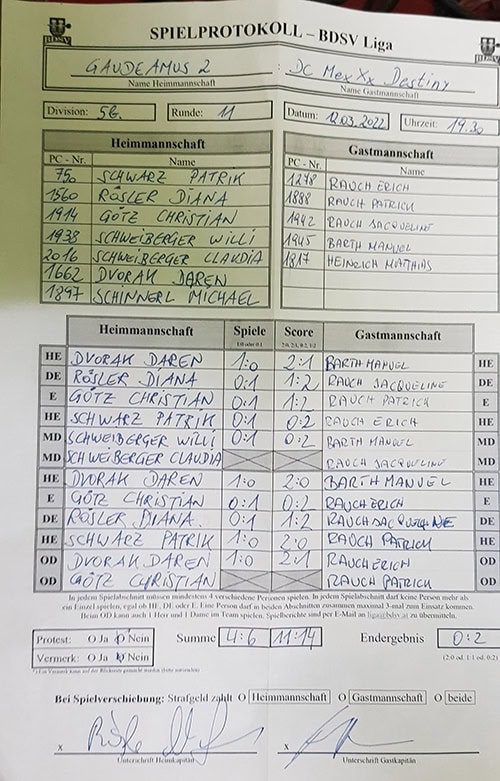 SPIELPROTOKOLL – BDSV Liga
BDSV
GAUDEAMUS 2 : DC MexXx Destiny
Name Heimmannschaft Name Gastmannschaft
Division: 5b. Runde: 11 Datum: 12.03.2022 Uhrzeit: 19.30
Heimmannschaft Gastmannschaft
PC - Nr. Name PC - Nr. Name
750 SCHWARZ PATRIK 1278 RAUCH ERICH
1560 RÖSLER DIANA 1888 RAUCH PATRICK
1914 GÖTZ CHRISTIAN 1942 RAUCH JACQUELINE
1938 SCHWEIBERGER WILLI 1945 BARTH MANUEL
2016 SCHWEIBERGER CLAUDIA 1817 HEINRICH MATTHIAS
1662 DVORAK DAREN
1897 SCHINNERL MICHAEL
Heimmannschaft Spiele Score Gastmannschaft
1:0 oder 0:1 2:0, 2:1, 0:2, 1:2
HE DVORAK DAREN 1:0 2:1 BARTH MANUEL HE
DE RÖSLER DIANA 0:1 1:2 RAUCH JACQUELINE DE
E GÖTZ CHRISTIAN 0:1 1:2 RAUCH PATRICK E
HE SCHWARZ PATRIK 0:1 0:2 RAUCH ERICH HE
MD SCHWEIBERGER WILLI 0:1 0:2 BARTH MANUEL MD
MD SCHWEIBERGER CLAUDIA RAUCH JACQUELINE MD
HE DVORAK DAREN 1:0 2:0 BARTH MANUEL HE
E GÖTZ CHRISTIAN 0:1 0:2 RAUCH ERICH E
DE RÖSLER DIANA. 0:1 1:2 RAUCH JACQUELINE DE
HE SCHWARZ PATRIK 1:0 2:0 RAUCH PATRICK HE
OD DVORAK DAREN 1:0 2:1 RAUCH ERICH OD
OD GÖTZ CHRISTIAN RAUCH PATRICK OD
In jedem Spielabschnitt müssen mindestens 4 verschiedene Personen spielen. In jedem Spielabschnitt darf keine Person mehr als
ein Einzel spielen, egal ob HE, DE oder E. Eine Person darf in beiden Abschnitten zusammen maximal 3-mal zum Einsatz kommen.
Beim OD kann auch 1 Herr und 1 Dame im Team spielen. Spielberichte sind per E-Mail an liga@bdsv.at zu übermitteln.
Protest: O Ja O Nein Summe 4:6 11:14 Endergebnis 0:2
Vermerk: O Ja O Nein (2:0 od. 1:1 od. 0:2)
Bei Spielverschiebung: Strafgeld zahlt O Heimmannschaft O Gastmannschaft O beide
x x
Unterschrift Heimkapitän Unterschrift Gastkapitän